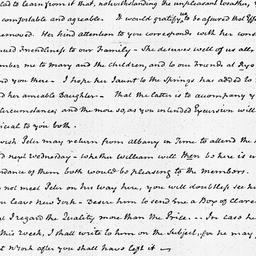 ted to learn from it that, notwithstanding the unpleasant weather, y
comfortable and agreable. It would gratify us to be assured that Eff
removed. Her kind attention to you corresponds with her cons
ued Friendliness to our Family— She deserves well of us all.
mber me to Mary and the Children, and to our Friends at Rye
nd you there— I hope her Jaunt to the Springs has added to
nd her amiable Daughter— That the latter is to accompany y
circumstances, and the more so, as you intended Excursion will
icial to you both.
wish Peter may return from Albany in Time to attend the
nd next Wednesday— whether William will then be here is u
ndance of them both would be pleasing to the members.
not meet Peter on his way here, you will doubtless see her
u leave New York— Desire him to send me a Box of Clare
al I regard the Quality more than the Price.— In case he
this week, I shall write to him on the Subject, for he may
t York after you shall have left it—